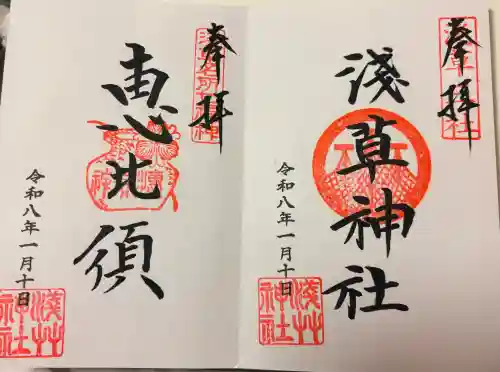 奉拝
淺草神社
令和八年一月十日
淺草神社
奉拝
恵比須
令和八年一月十日
淺草神社